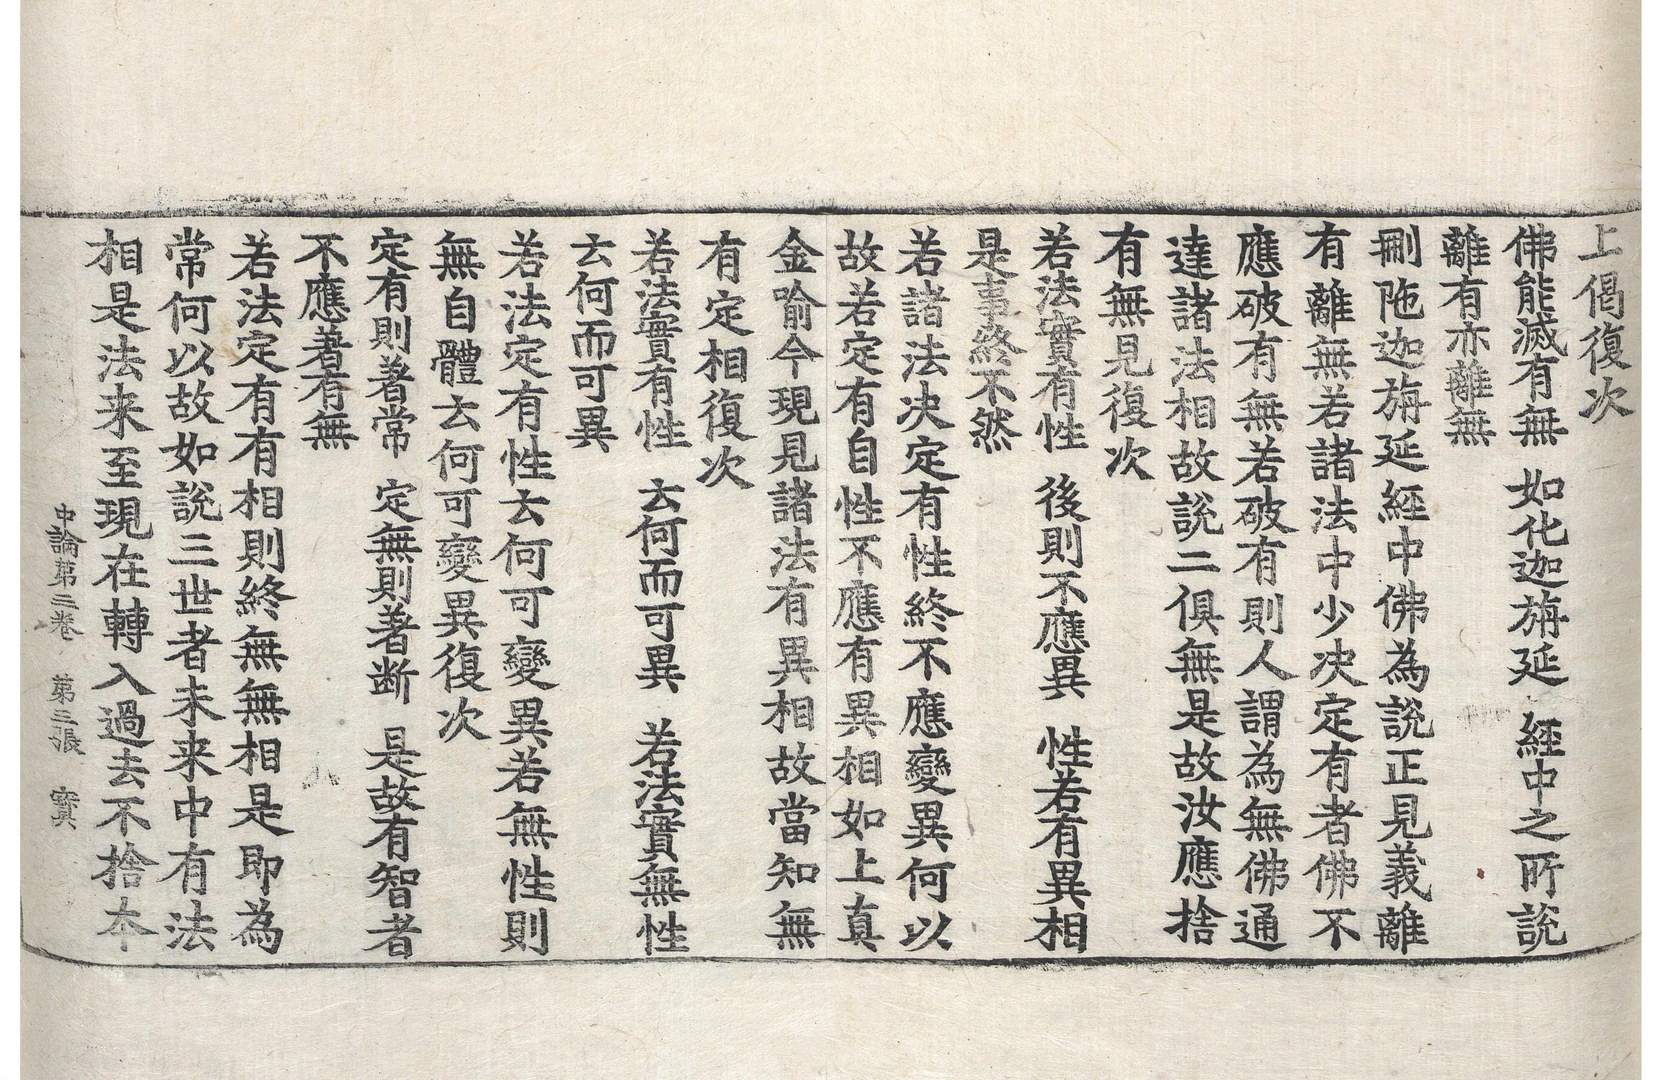 上偈復次
佛能滅有無　如化迦旃延　經中之所說
離有亦離無
刪陁迦旃延經中佛為說正見義離
有離無若諸法中少决定有者佛不
應破有無若破有則人謂為無佛通
達諸法相故說二俱無是故汝應捨
有無見復次
若法實有性　後則不應異　性若有異相
是事終不然
若諸法决定有性終不應變異何以
故若定有自性不應有異相如上真
金喻今現見諸法有異相故當知無
有定相復次
若法實有性　云何而可異　若法實無性
云何而可異
若法定有性云何可變異若無性則
無自體云何可變異復次
定有則著常　定無則著斷　是故有智者
不應著有無
若法定有有相則終無無相是即為
常何以故如說三世者未来中有法
相是法来至現在轉入過去不捨本
中論第三卷　第三張　寘